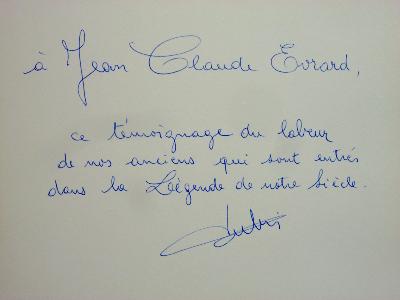 à Jean Claude Evrard,
ce témoignage du labeur
de nos anciens qui sont entrés
dans la Légende de notre Siècle.